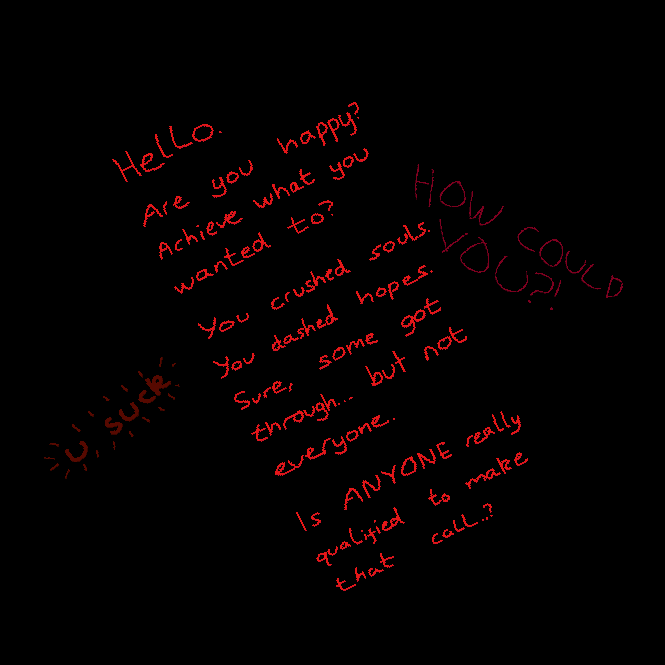 Hello.
Are you happy?
Achieve what you
wanted to?
You crushed souls.
You dashed hopes.
Sure, some got
through... but not
everyone.
Is ANYONE really
qualified to make
that call..?
HOW COULD
YOU?!
U SUCK